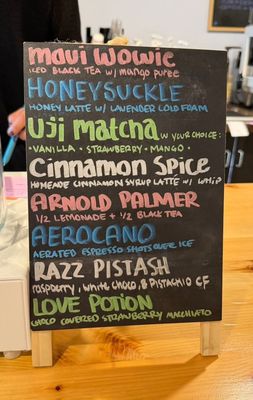 Maui Wowie
Iced Black Tea w/ mango puree
Honeysuckle
Honey latte w/ lavender cold foam
Uji Matcha w your choice:
• Vanilla • Strawberry • Mango •
Cinnamon Spice
Homemade cinnamon syrup latte w/ whip
Arnold Palmer
1/2 Lemonade + 1/2 Black Tea
Aerocano
Aerated espresso shots over ice
Razz Pistash
raspberry, white choco, & pistachio CF
Love Potion
Choco covered strawberry macchiato